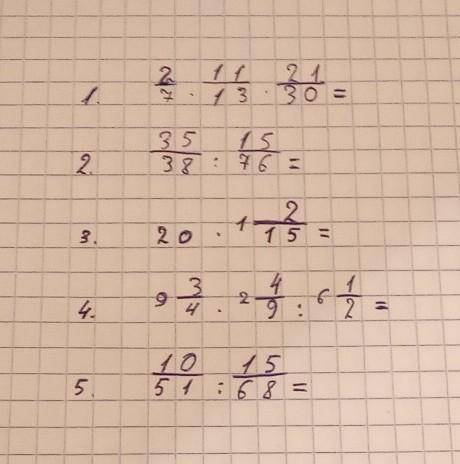 1. 2/7 · 11/13 · 21/30 =
2. 35/38 : 15/76 =
3. 20 · 1 2/15 =
4. 9 3/4 · 2 4/9 : 6 1/2 =
5. 10/51 : 15/68 =